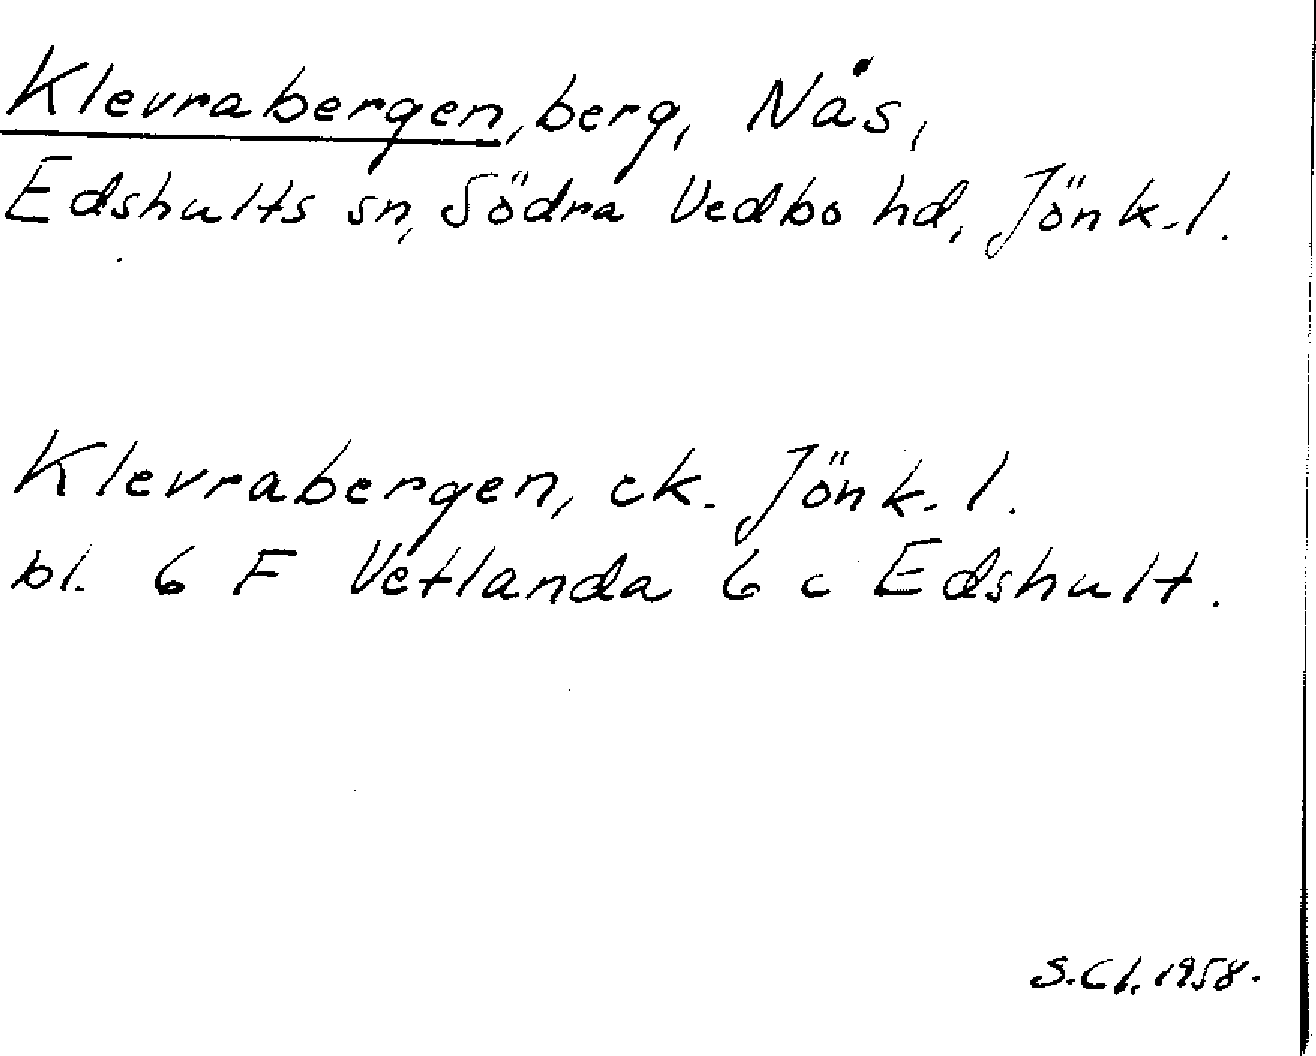 Klevrabergen, berg, Nås,
Edshults sn, Södra Vedbo hd, Jönk.l.
Klevrabergen, ek. Jönk.l.
bl. 6 F Vetlanda 6 c Edshult.
S.Cl. 1958.